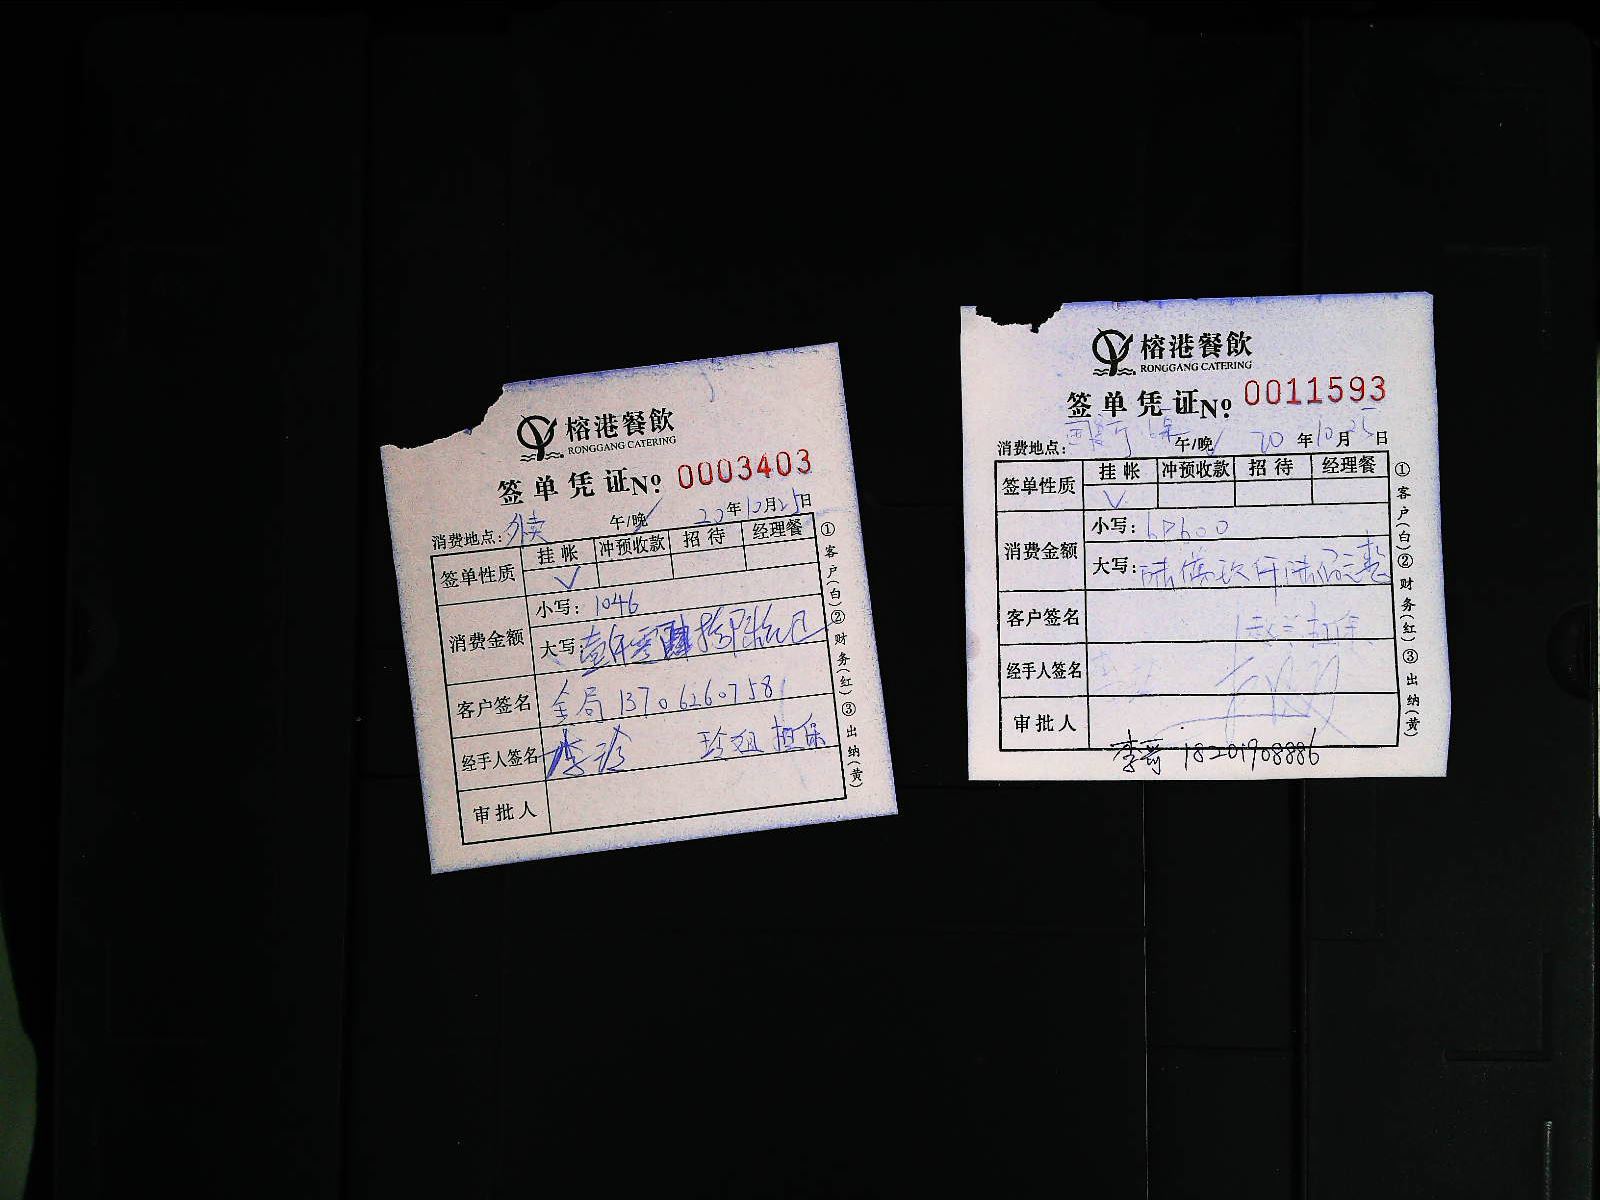 榕港餐飲
RONGGANG CATERING
签单凭证 Nº 0003403
消费地点: 外卖 午/晚 20年10月25日
签单性质 挂帐 冲预收款 招待 经理餐
✓
消费金额 小写: 1046
大写: 壹仟零肆拾陆元
客户签名 全局 13706260758
经手人签名 李玲 玲姐担保
审批人
①客户(白)②财务(红)③出纳(黄)
榕港餐飲
RONGGANG CATERING
签单凭证 Nº 0011593
消费地点: 午/晚 20年10月25日
签单性质 挂帐 冲预收款 招待 经理餐
✓
消费金额 小写: 60600
大写: 陆佰元整
客户签名
经手人签名
审批人
李哥 18201908886
①客户(白)②财务(红)③出纳(黄)